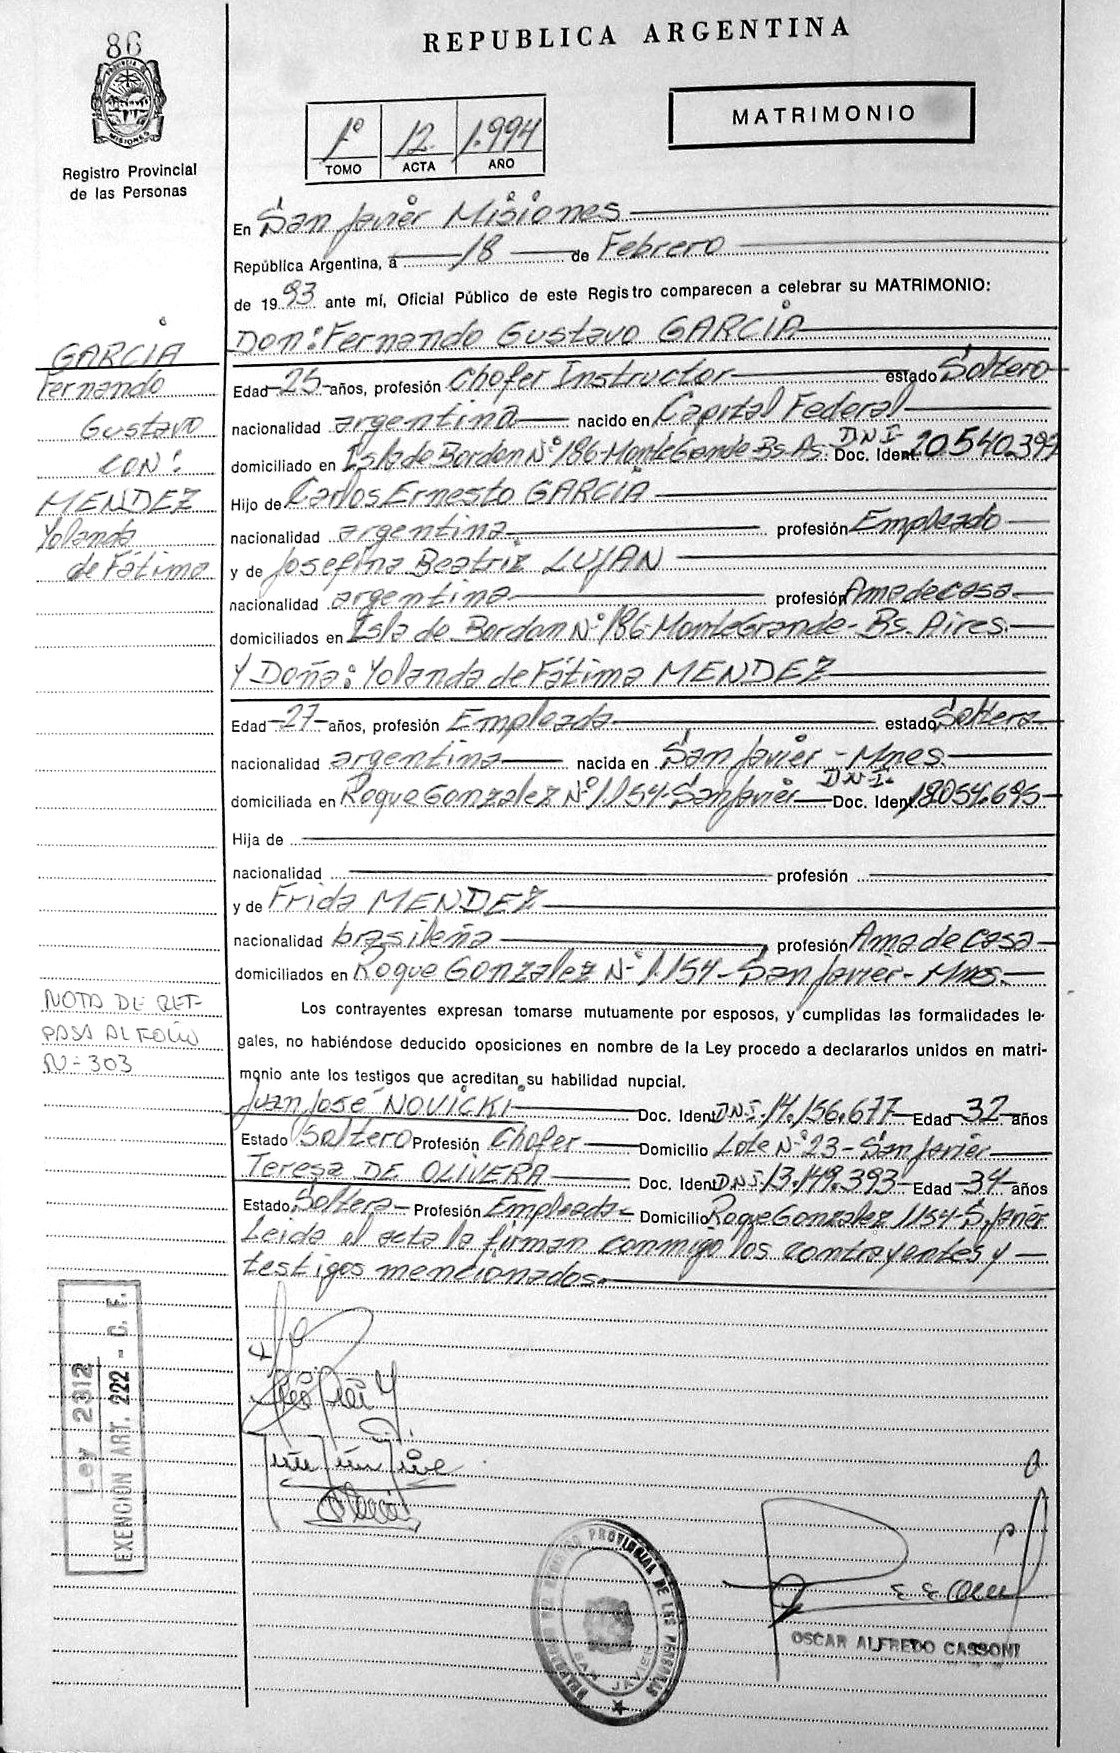 86
REPUBLICA ARGENTINA
PROVINCIA DE MISIONES
Registro Provincial
de las Personas
1º 12 1.994
TOMO ACTA AÑO
MATRIMONIO
En San Javier Misiones
República Argentina, a 18 de Febrero
de 1993 ante mí, Oficial Público de este Registro comparecen a celebrar su MATRIMONIO:
Don: Fernando Gustavo GARCIA
Edad 25 años, profesión Chofer Instructor estado Soltero
nacionalidad argentina nacido en Capital Federal
domiciliado en Isla de Bordon Nº 186-Monte Grande-Bs.As. DNI Doc. Ident.
Hijo de Carlos Ernesto GARCIA
nacionalidad argentina profesión Empleado
y de Josefina Beatriz LUJAN
nacionalidad argentina profesión Ama de casa
domiciliados en Isla de Bordon Nº 186-Monte Grande-Bs.Aires.
Y Doña: Yolanda de Fátima MENDEZ
Edad 27 años, profesión Empleada estado Soltera
nacionalidad argentina nacida en San Javier - Mnes.
domiciliada en Roque Gonzalez Nº 1.154-San Javier D.N.I. Doc. Ident. 18.054.695
Hija de
nacionalidad profesión
y de Frida MENDEZ
nacionalidad brasileña, profesión Ama de casa
domiciliados en Roque Gonzalez Nº 1.154-San Javier-Mnes.
Los contrayentes expresan tomarse mutuamente por esposos, y cumplidas las formalidades le-
gales, no habiéndose deducido oposiciones en nombre de la Ley procedo a declararlos unidos en matri-
monio ante los testigos que acreditan su habilidad nupcial.
Juan José NOVICKI Doc. Ident D.N.I. 14.156.677 Edad 32 años
Estado Soltero Profesión Chofer Domicilio Lote Nº 23-San Javier
Teresa DE OLIVERA Doc. Ident D.N.I. 13.149.393 Edad 34 años
Estado Soltera Profesión Empleada Domicilio Roque Gonzalez 1154-S.Javier
Leida el acta la firman conmigo los contrayentes y
testigos mencionados.
GARCIA
Fernando
Gustavo
CON:
MENDEZ
Yolanda
de Fátima
NOTA DE RET-
PASA AL FOLIO
Nº 303
Ley 2312
EXENCIÓN ART. 222 - C. F.
REGISTRO PROVINCIAL DE LAS PERSONAS
SAN JAVIER
OSCAR ALFREDO CASSONI